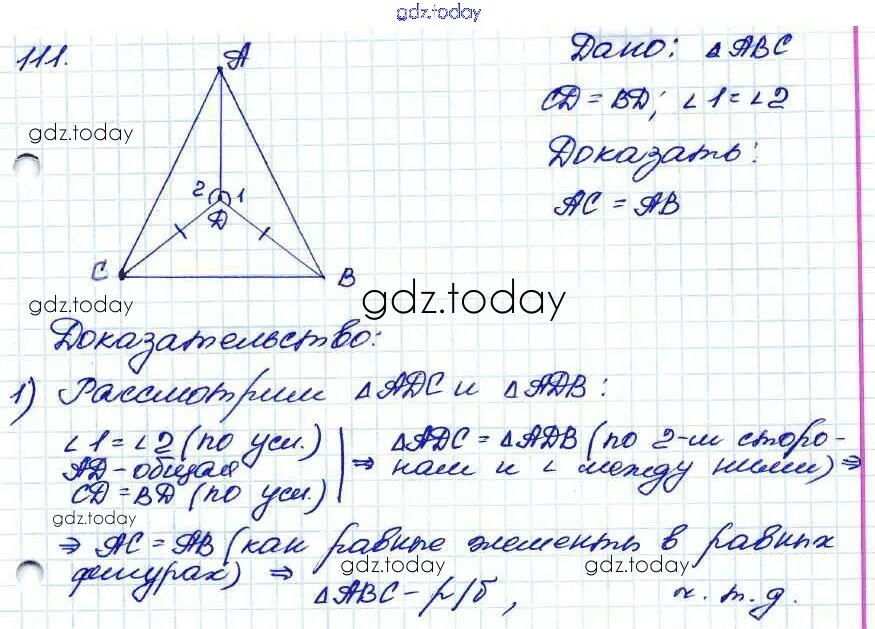 gdz.today
111.
A
Дано: △ABC
CD = BD; ∠1 = ∠2
gdz.today
Доказать:
2 1
AC = AB
D
C
B
gdz.today
gdz.today
Доказательство:
1) Рассмотрим △ADC и △ADB:
∠1 = ∠2 (по усл.)
AD - общая
CD = BD (по усл.)
⇒ △ADC = △ADB (по 2-м сторо-
нам и ∠ между ними) ⇒
gdz.today
⇒ AC = AB (как равные элементы в равных
фигурах) ⇒
gdz.today
gdz.today
△ABC - р/б, ч.т.д.